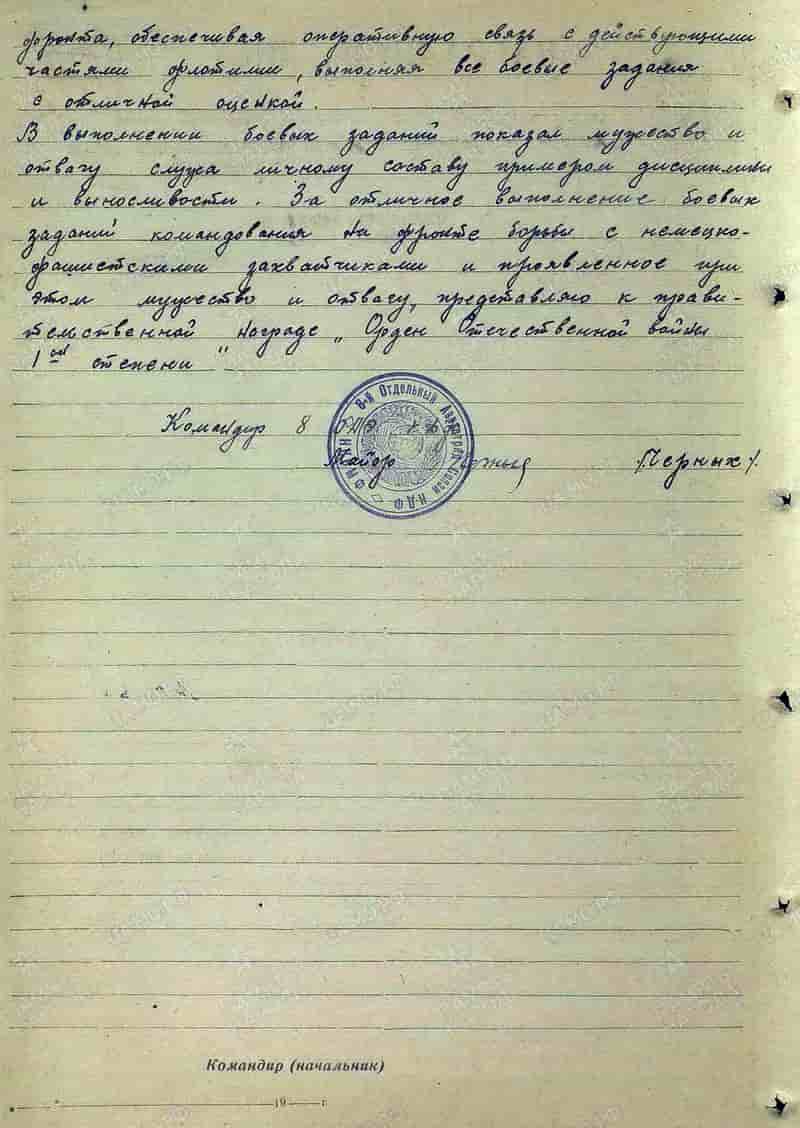 фронта, обеспечивая оперативную связь с действующими
частями флотилии, выполняя все боевые задания
с отличной оценкой.
В выполнении боевых заданий показал мужество и
отвагу служа личному составу примером дисциплины
и выносливости. За отличное выполнение боевых
заданий командования на фронте борьбы с немецко-
фашистскими захватчиками и проявленное при
этом мужество и отвагу, представляю к прави-
тельственной награде „Орден Отечественной войны
1ой степени"
8-й Отдельный Авиаотряд Связи КДФ
Командир 8
Майор /Черных/.
Командир (начальник)
19 г.